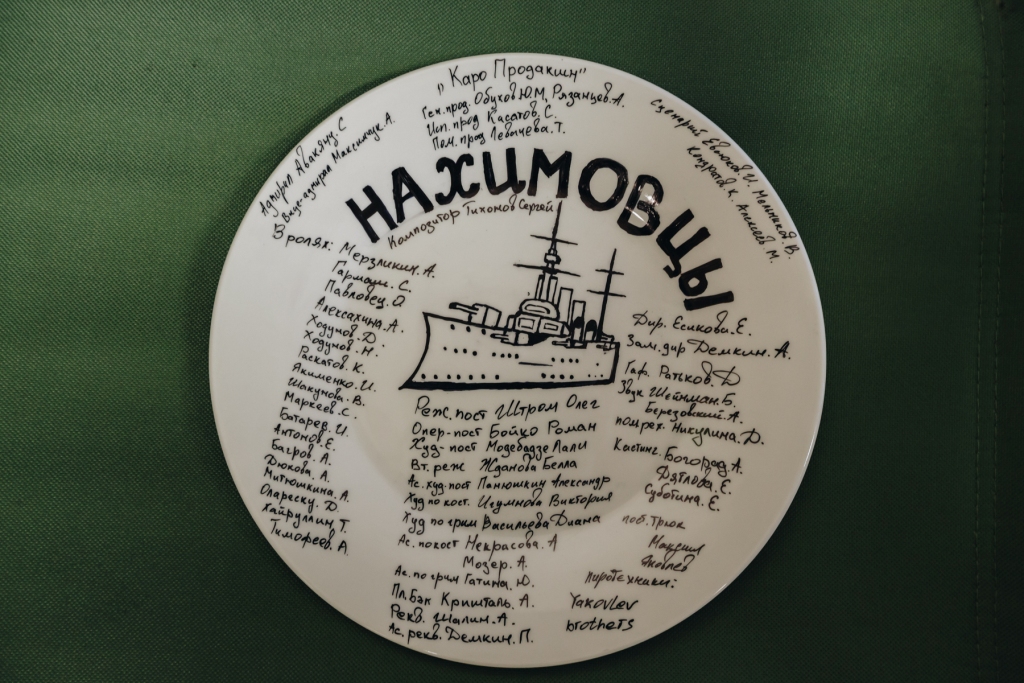 „Каро Продакшн"
Ген.прод. Обухов Ю.М, Рязанцев.А.
Исп. прод Касатов. С.
Пом. прод Левычева. Т.
Адмирал Авакянц. С
Вице-адмирал Максимчук А.
Сценарий Евлюхов. И. Мельников. В.
Кондратов К. Алексеев. М.
НАХИМОВЦЫ
Композитор Тихонов Сергей
В ролях: Мерзликин. А.
Гармаш. С.
Павловец. О
Алексахина. А.
Ходунов. Д.
Ходунов. Н.
Раскатов. К.
Якименко. И.
Шакунова. В.
Маркеев. С.
Батарев. И.
Антонов. Е.
Багров. А.
Дюкова. А.
Митюшкина. А.
Опареску. Д.
Хайруллин. Т.
Тимофеев. А.
Реж. пост Штром Олег
Опер-пост Бойко Роман
Худ-пост Модебадзе Лали
Вт. реж Жданова Белла
Ас. худ. пост Панюшкин Александр
Худ по кост. Игумнова Виктория
Худ по грим Васильева Диана
Ас. по кост Некрасова. А
Мозер. А.
Ас. по грим Гатина. Ю.
Пл. Бэк Кришталь. А.
Рекв. Шалин. А.
Ас. рекв. Демкин. П.
Дир. Есикова. Е.
Зам. дир Демкин. А.
Гаф. Ратьков. Д
Звук Шейнман. Б.
Березовский. А.
пом.реж. Никулина. Д.
Кастинг. Богорад. А.
Дятлова. Е.
Субботина. Е.
пост. трюк
Максим
Яковлев
пиротехники:
Yakovlev
brothers